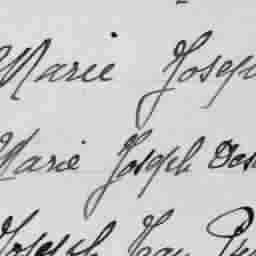 Marie Joseph
Marie Joseph Des
Joseph Jean